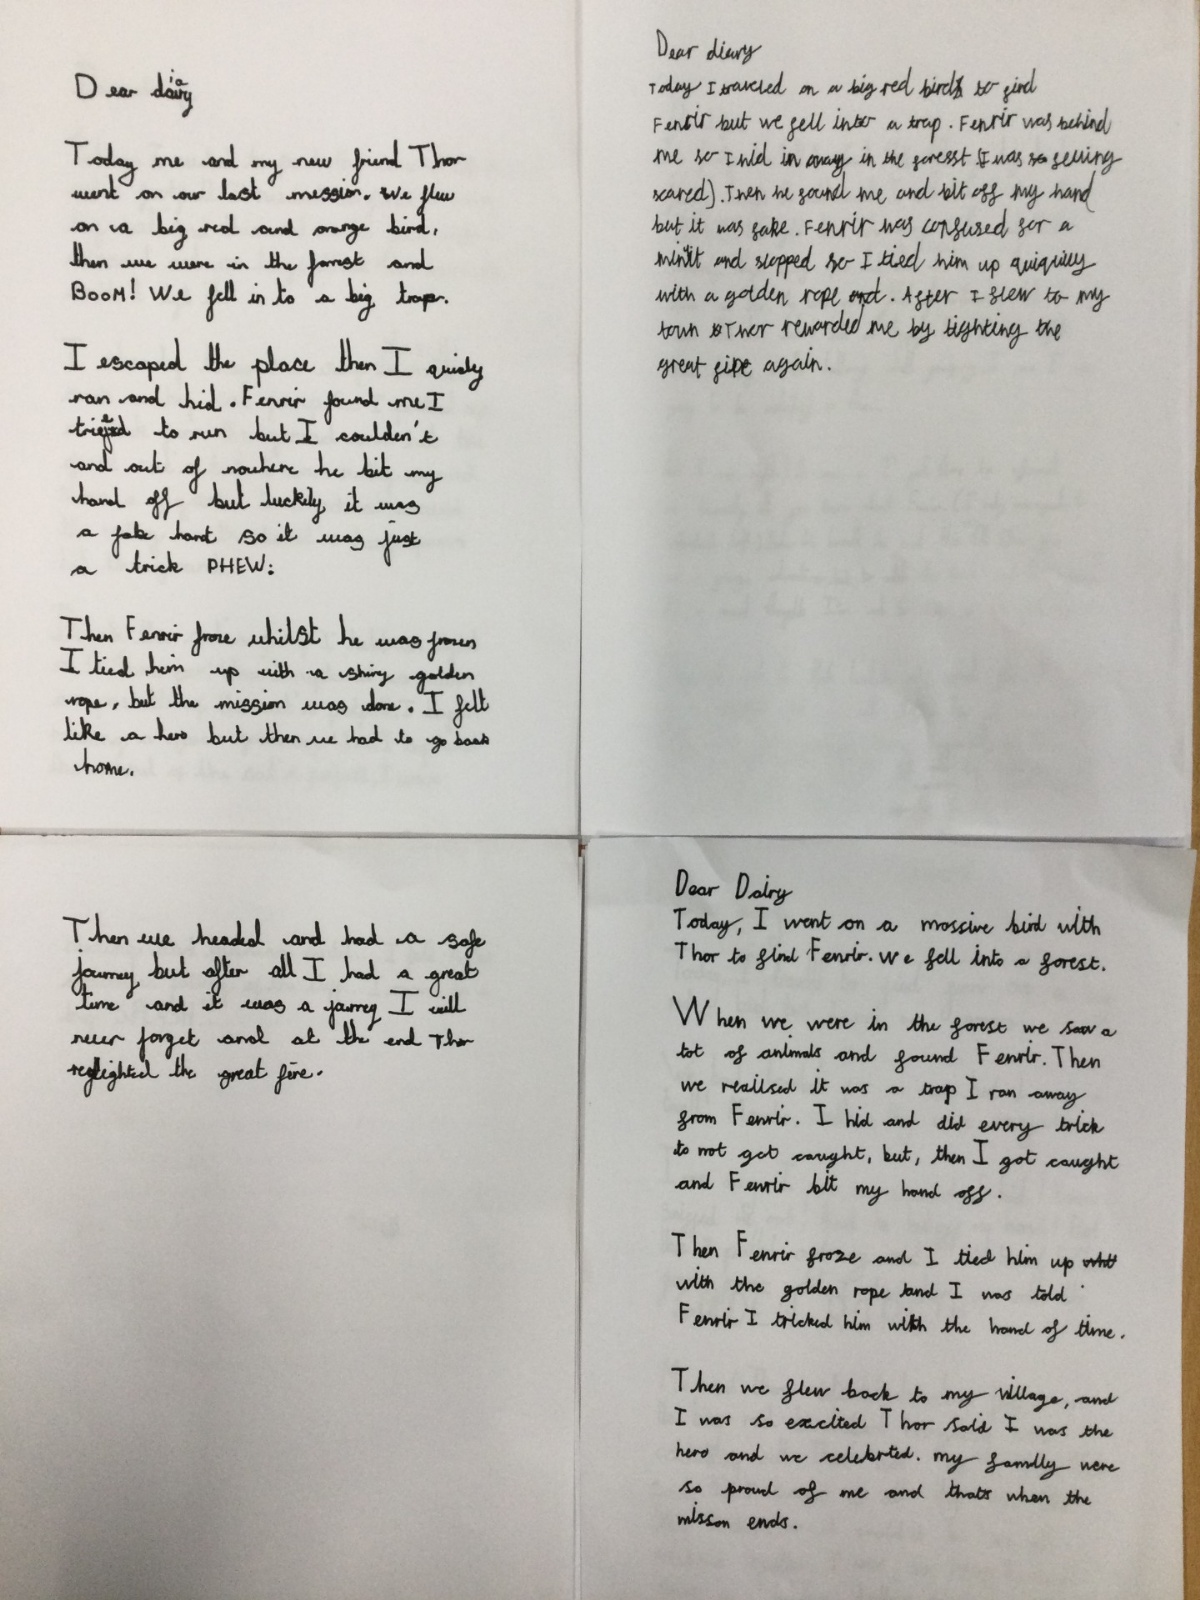 Dear diary
Today me and my new friend Thor
went on our last mession. We flew
on a big red and orange bird,
then we were in the forrest and
BOOM! We fell in to a big trap.
I escaped the place then I quiely
ran and hid. Fenrir found me I
tried to run but I coulden't
and out of nowhere he bit my
hand off but luckily it was
a fake hand so it was just
a trick PHEW:
Then Fenrir froze whilst he was frozen
I tied him up with a shiny golden
rope, but the mission was done. I felt
like a hero but then we had to go back
home.
Then we headed and had a safe
journey but after all I had a great
time and it was a jarney I will
never forget and at the end Thor
relighted the great fire.
Dear diary
Today I traveled on a big red bird to find
Fenrir but we fell into a trap. Fenrir was behind
me so I hid in away in the foresst (I was so feuing
scared). Then he found me and bit off my hand
but it was fake. Fenrir was confused for a
minit and stopped so I tied him up quiquily
with a golden rope. After I flew to my
town Thor rewarded me by lighting the
great fire again.
Dear Dairy
Today, I went on a massive bird with
Thor to find Fenrir. We fell into a forest.
When we were in the forest we saw a
lot of animals and found Fenrir. Then
we realised it was a trap I ran away
from Fenrir. I hid and did every trick
to not get caught, but, then I got caught
and Fenrir bit my hand off.
Then Fenrir froze and I tied him up
with the golden rope and I was told
Fenrir I tricked him with the hand of time.
Then we flew back to my village, and
I was so excited Thor said I was the
hero and we celebrted. my familly were
so proud of me and thats when the
misson ends.